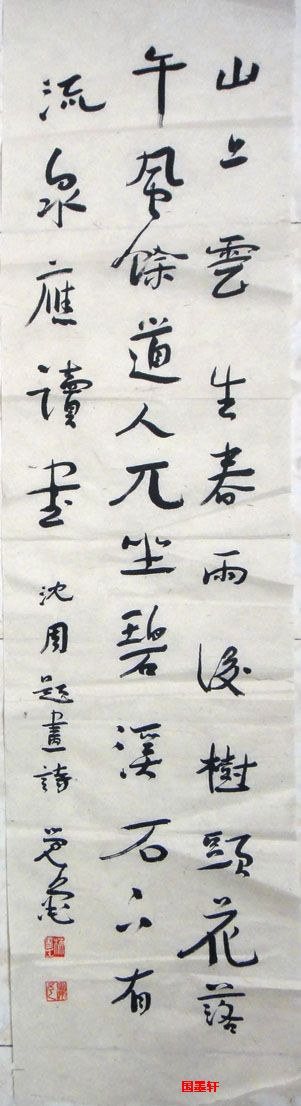 山上雲生春雨後樹頭花落
午風餘道人兀坐碧溪石不有
流泉應讀書
沈周題畫詩
国美轩